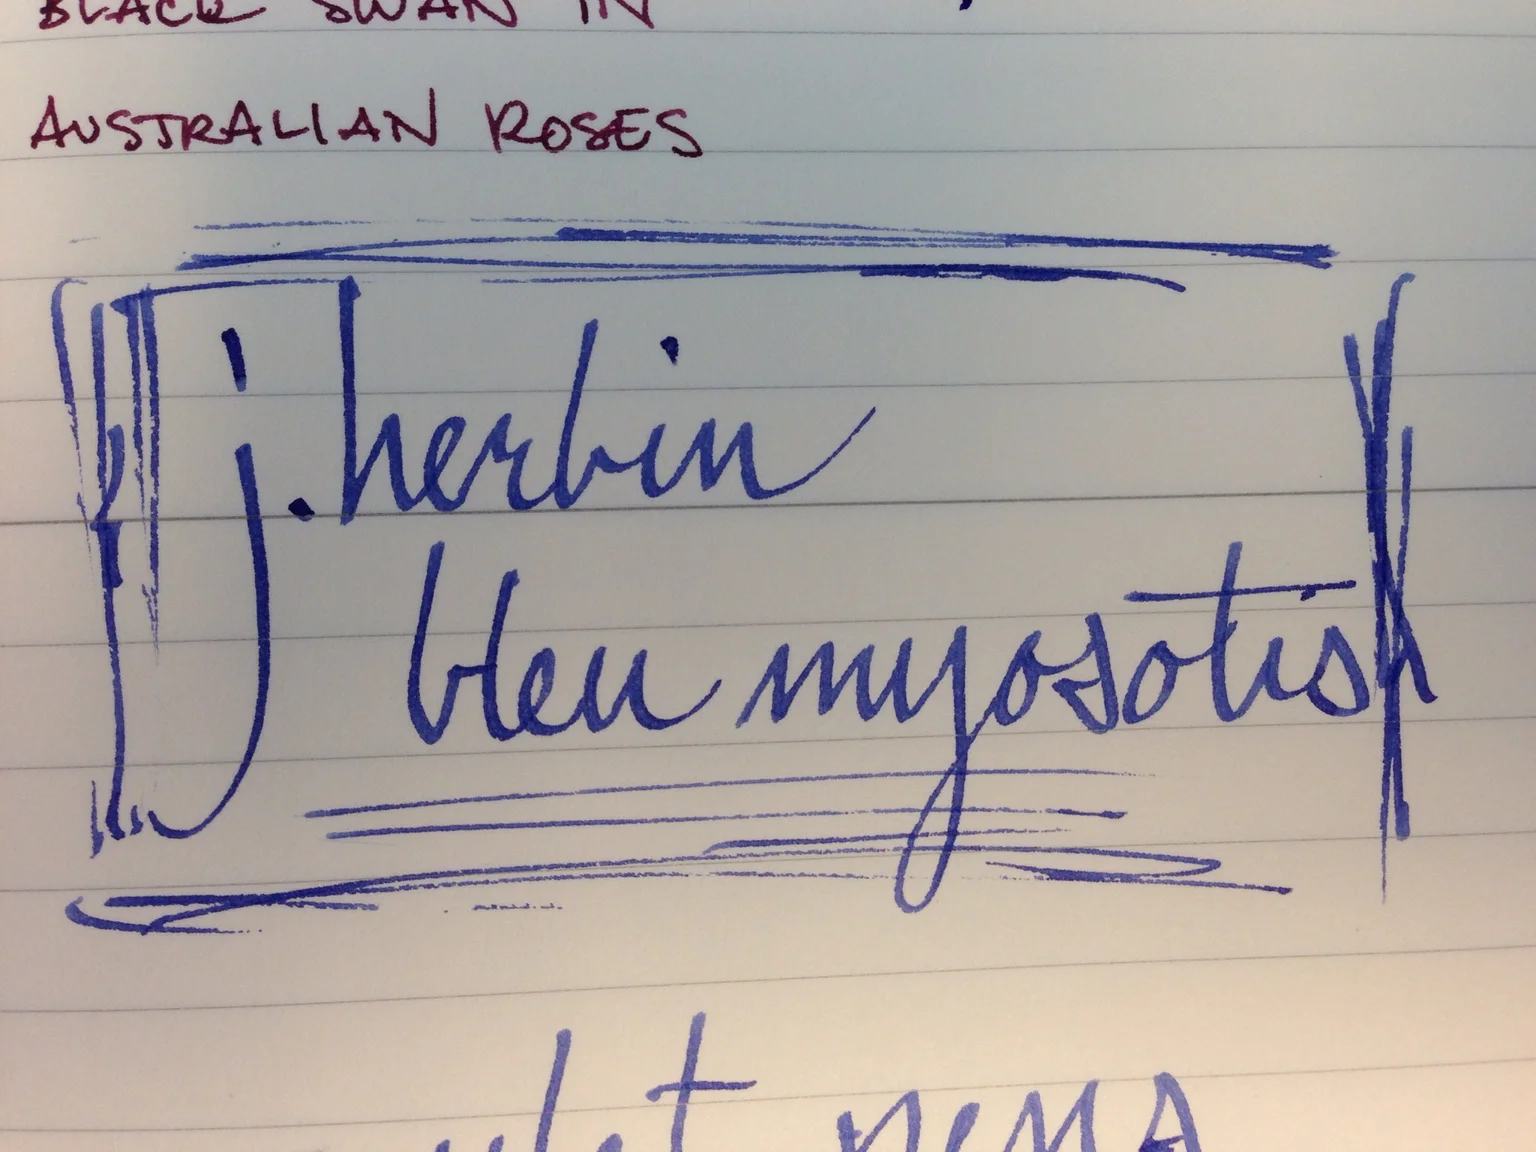 BLACK SWAN IN
AUSTRALIAN ROSES
j. herbin
bleu myosotis